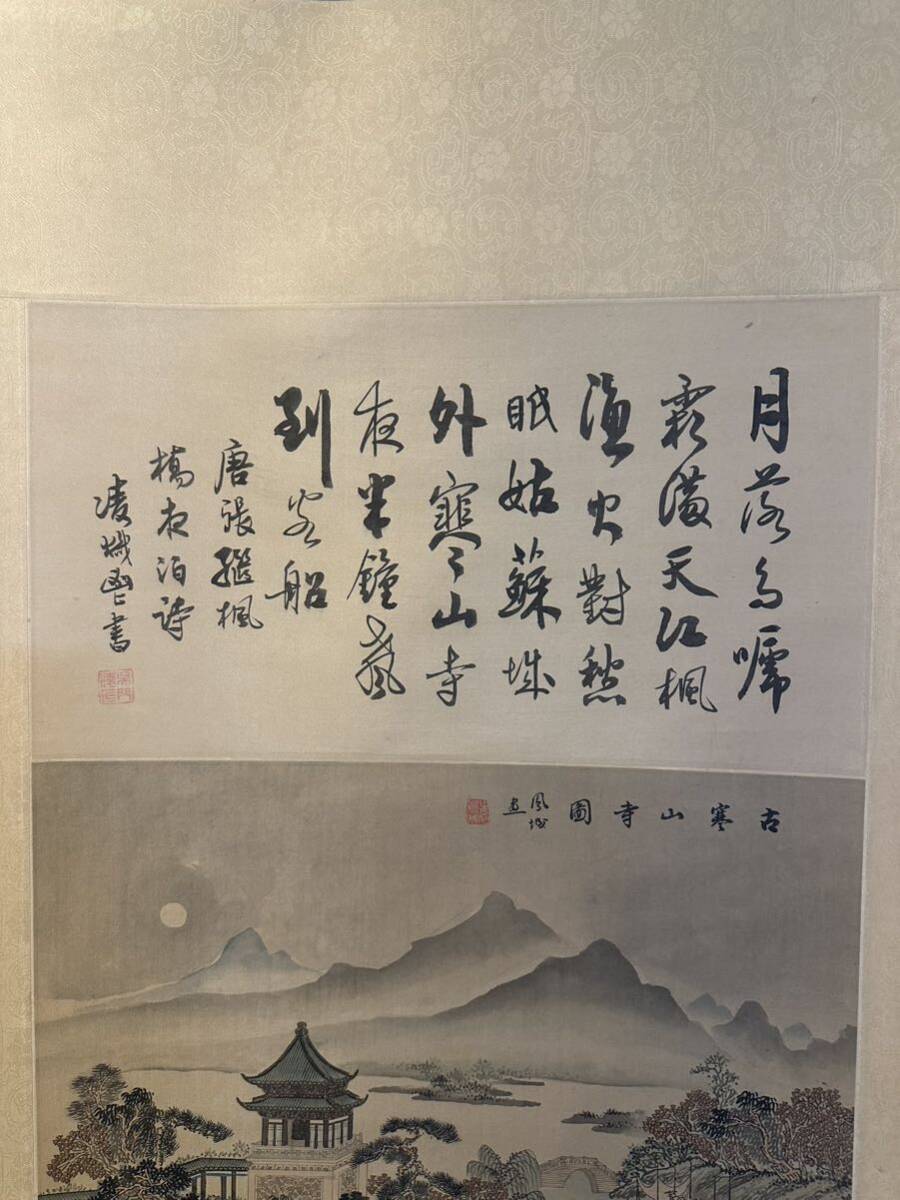 月落烏嗁
霜滿天江楓
漁火對愁
眠姑蘇城
外寒山寺
夜半鐘聲
到客船
唐張繼楓
橋夜泊詩
凌城書
古寒山寺圖